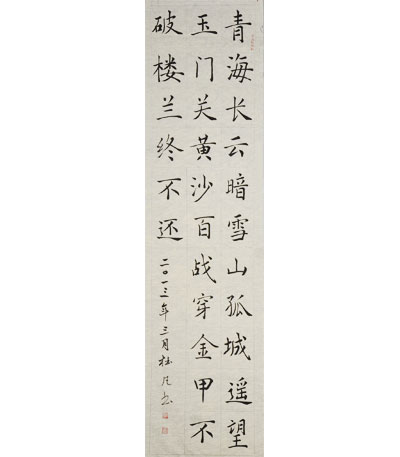 青海长云暗雪山孤城遥望
玉门关黄沙百战穿金甲不
破楼兰终不还
二〇一三年三月杜书